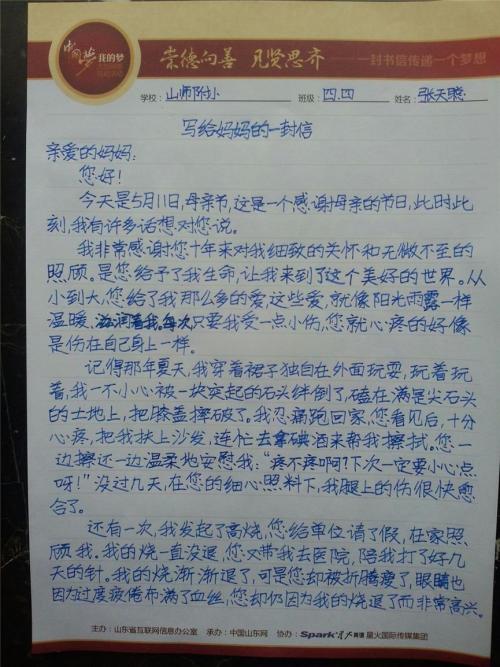 中国梦 我的梦
崇德向善 见贤思齐 一封书信传递一个梦想
学校:山师附小 班级:四.四 姓名:张天聪
写给妈妈的一封信
亲爱的妈妈:
您好!
今天是5月11日,母亲节,这是一个感谢母亲的节日,此时此
刻,我有许多话想对您说。
我非常感谢您十年来对我细致的关怀和无微不至的
照顾。是您给予了我生命,让我来到了这个美好的世界。从
小到大,您给了我那么多的爱,这些爱,就像阳光雨露一样
温暖、滋润着我。每次只要我受一点小伤,您就心疼的好像
是伤在自己身上一样。
记得那年夏天,我穿着裙子独自在外面玩耍,玩着玩
着,我一不小心被一块突起的石头绊倒了,磕在满是尖石头
的土地上,把膝盖摔破了。我忍痛跑回家,您看见后,十分
心疼,把我扶上沙发,连忙去拿碘酒来帮我擦拭。您一
边擦还一边温柔地安慰我:“疼不疼啊?下次一定要小心点
呀!”没过几天,在您的细心照料下,我腿上的伤很快愈
合了。
还有一次,我发起了高烧,您给单位请了假,在家照
顾我。我的烧一直没退,您又带我去医院,陪我打了好几
天的针。我的烧渐渐退了,可是您却被折腾瘦了,眼睛也
因为过度疲倦布满了血丝,您却仍因为我的烧退了而非常高兴。
主办:山东省互联网信息办公室 承办:中国山东网 协办:Spark星火英语 星火国际传媒集团